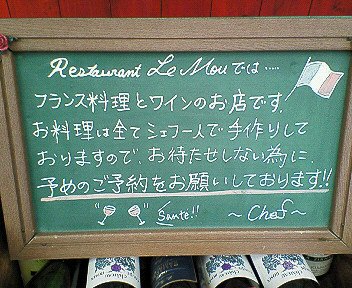 Restaurant Le Mouでは……
フランス料理とワインのお店です。
お料理は全てシェフ一人で手作りして
おりますので、お待たせしない為に、
予めのご予約をお願いしております!!
Santé!! ～Chef～